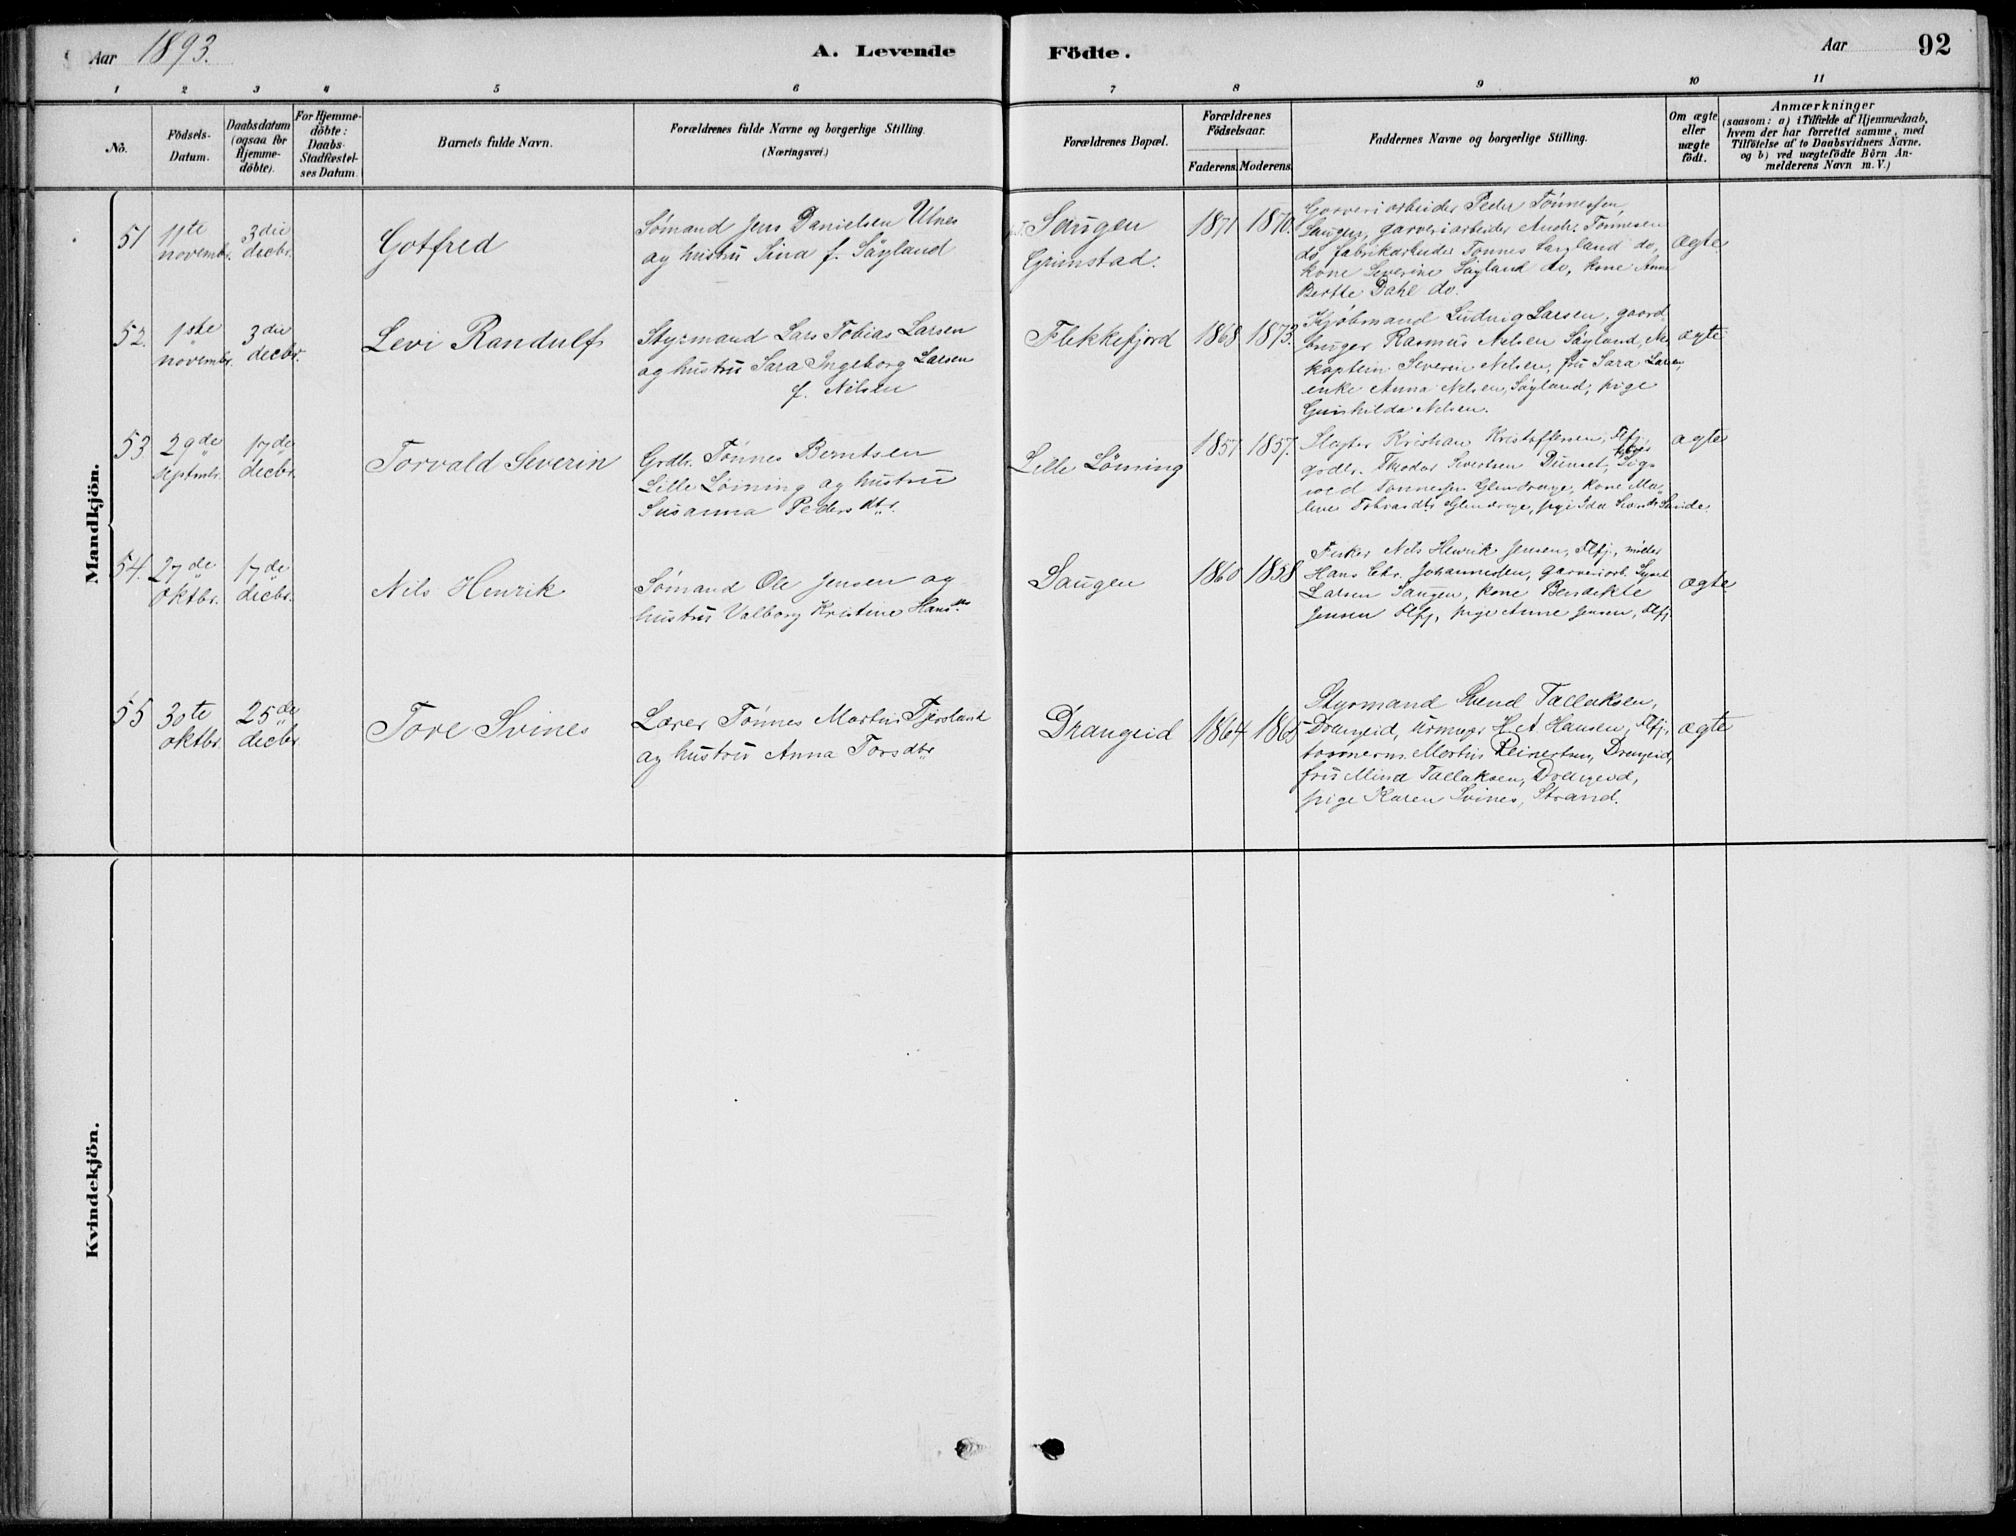 Aar 1893.
A. Levende
Födte.
Aar
92
1 2 3 4 5 6 7 8 9 10 11
No.
Födsels-
Datum.
Daabsdatum
(ogsaa for
Hjemme-
döbte).
For Hjemme-
döbte:
Daabs-
Stadfæstel-
ses Datum.
Barnets fulde Navn.
Forældrenes fulde Navne og borgerlige Stilling.
(Næringsvei.)
Forældrenes Bopæl.
Forældrenes
Födselsaar.
Faderens. Moderens.
Faddernes Navne og borgerlige Stilling.
Om ægte
eller
uægte
födt.
Anmærkninger
(saasom: a) i Tilfælde af Hjemmedaab,
hvem der har forrettet samme, med
Tilföielse af to Daabsvidners Navne,
og b) ved uægtefödte Börn An-
melderens Navn m. V.)
Mandkjön.
51
11te
novembr.
3die
decbr.
Gotfred
Sømand Jens Danielsen Ulnes
og hustru Sina f. Søyland
Saugen
Grimstad.
1871 1870.
Garveriarbeider Peder Tønnessen,
Saugen, garveriarbeider Andr. Tønnesen
do, fabrikarbeider Tønnes Søyland do,
kone Severine Søyland do, kone Anne
Bertte Dahl do.
ægte
52.
1ste
novembr.
3die
decbr.
Levi Randulf
Styrmand Lars Tobias Larsen
og hustru Sara Ingeborg Larsen
f. Nilsen
Flekkefjord
1868 1873.
Kjøbmand Ludvig Larsen, gaard
bruger Rasmus Nilsen Søyland,
kaptein Severin Nilsen, fru Sara Larsen,
enke Anna Nilsen, Søyland, pige
Gunhilda Nilsen.
ægte
53
29de
septmbr.
17de
decbr.
Torvald Severin
Grdbr. Tønnes Berntsen
Lille Løining og hustru
Susanna Pedersdtr.
Lille Løining
1851 1857.
Slagter Kristian Kristoffersen, Flfj.,
grdbr. Theodor Sivertsen Dunset, Sig
vald Tønnessen Glendrange, kone Ma-
line Glendrange, pige Ida Sande.
ægte
54.
27de
oktbr.
17de
decbr.
Nils Henrik
Sømand Ole Jensen og
hustru Valborg Kristine Hansdtr
Saugen
1860 1858
Fisker Nils Henrik Jensen, Flfj., møller
Hans Chr. Johannessen, garveriarb.
Larsen Saugen, kone Bendikte
Jensen Flfj, pige Anne Jensen, Flfj.
ægte
55
30te
oktbr.
25de
decbr
Tore Svines
Lærer Tønnes Martin Fjersland
og hustru Anna Torsdtr
Drangeid
1864 1865
Styrmand Svend Tallaksen,
Drangeid, urmager H. A. Hansen, Flfj.
tømmerm. Martin Reinertsen, Drangeid,
fru Mina Tallaksen, Drangeid,
pige Karen Svines, Strand.
ægte
Kvindekjön.